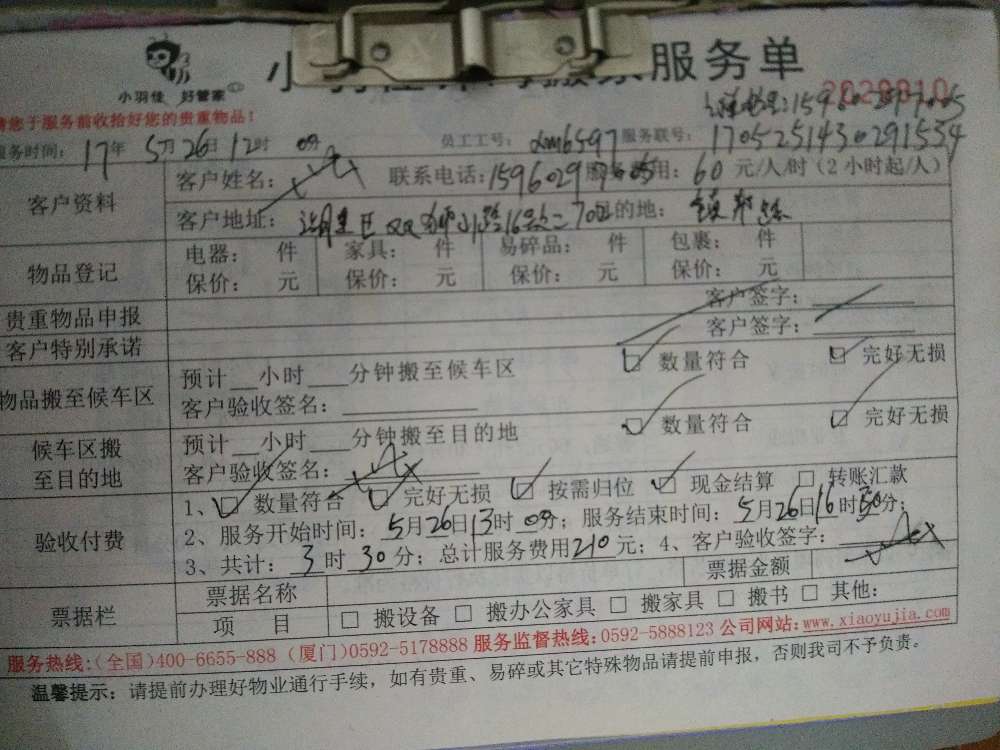 小羽佳 好管家
服务单
2020810
请您于服务前收拾好您的贵重物品！
服务时间：17年5月26日12时
员工工号：xm6597 服务联号：17052514302915
客户资料
客户姓名：
联系电话：
用：60元/人/时（2小时起/人）
客户地址：湖里区
的地：
物品登记
电器： 件 家具： 件 易碎品： 件 包裹： 件
保价： 元 保价： 元 保价： 元 保价： 元
贵重物品申报
客户签字：
客户特别承诺
客户签字：
物品搬至候车区
预计__小时___分钟搬至候车区
数量符合 完好无损
客户验收签名：
候车区搬至目的地
预计__小时___分钟搬至目的地
数量符合 完好无损
客户验收签名：
验收付费
1、数量符合 完好无损 按需归位 现金结算 转账汇款
2、服务开始时间：5月26日13时0分；服务结束时间：5月26日16时30分；
3、共计：3时30分；总计服务费用210元；4、客户验收签字：
票据栏
票据名称
票据金额
项 目
搬设备 搬办公家具 搬家具 搬书 其他：
服务热线：(全国)400-6655-888 (厦门)0592-5178888 服务监督热线：0592-5888123 公司网站：www.xiaoyujia.com
温馨提示：请提前办理好物业通行手续，如有贵重、易碎或其它特殊物品请提前申报，否则我司不予负责。